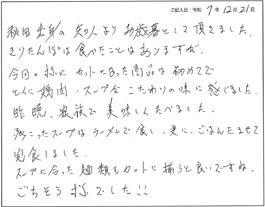 ご記入日:令和 7年 12月 21日
秋田出身の知人よりお歳暮として頂きました。
きりたんぽは食べたことはありますが、
今回の様にセットになった商品は初めてで
とくに鶏肉・スープ全こだわりの味に感じました。
昨晩、家族で美味しくたべました。
残ったスープはラーメンで食し、更に、ごはんたませて
完食しました。
スープに合った麺類もカットに揃うと良いですね。
ごちそう様でした!!